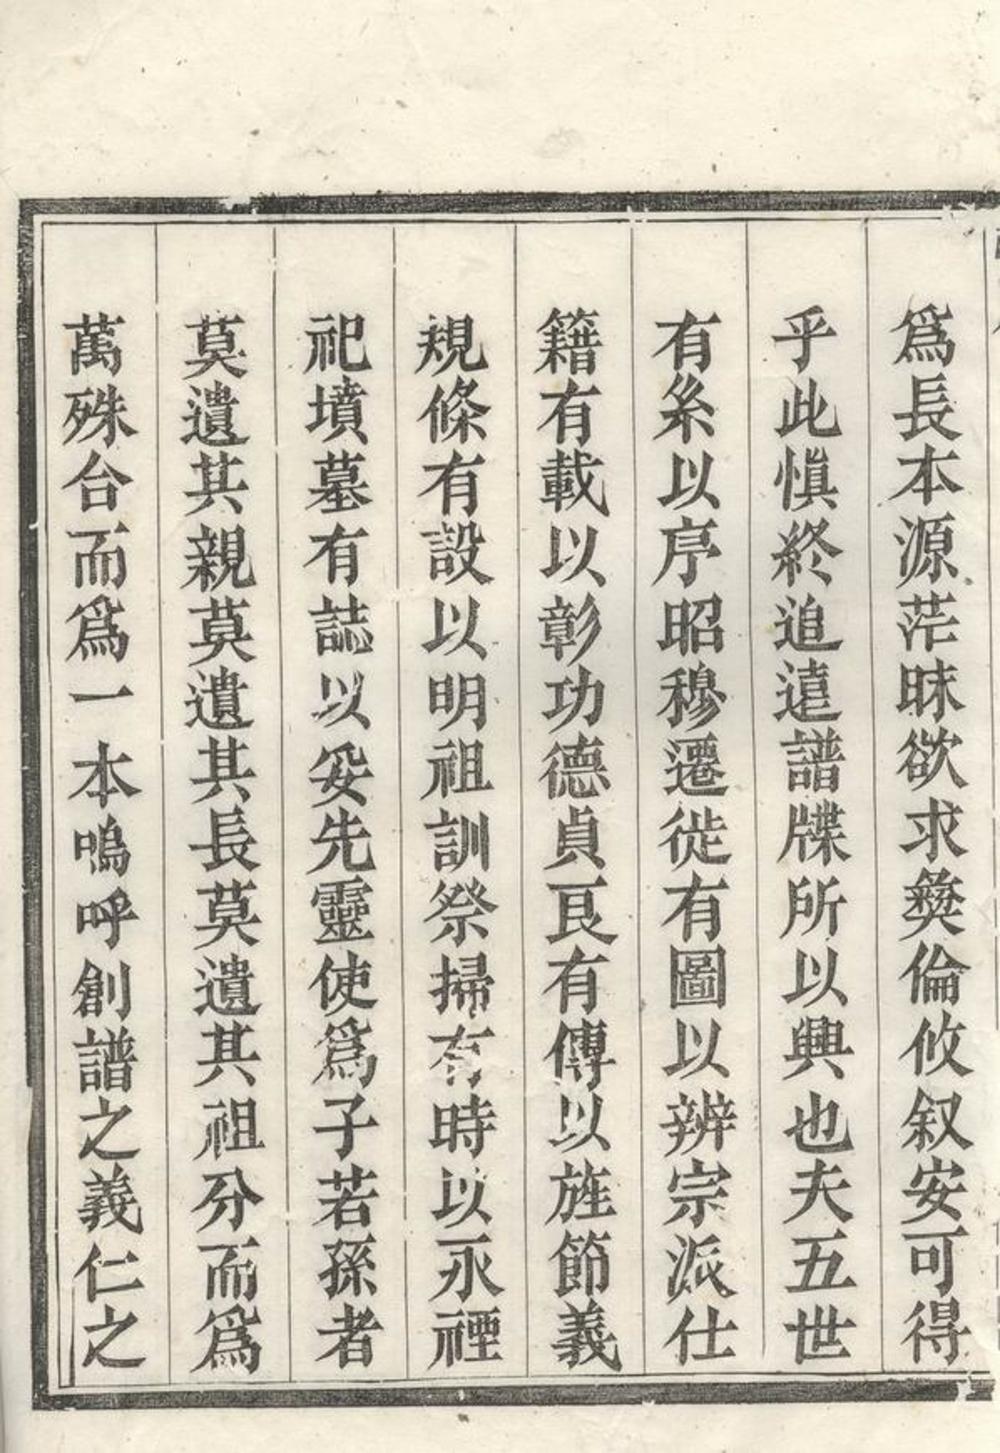 爲長本源茫昧欲求彜倫攸叙安可得
乎此愼終追逺譜牒所以興也夫五世
有系以序昭穆遷徙有圖以辨宗派仕
籍有載以彰功德貞良有傳以旌節義
規條有設以明祖訓祭掃有時以永禋
祀墳墓有誌以妥先靈使爲子若孫者
莫遺其親莫遺其長莫遺其祖分而爲
萬殊台而爲一本嗚呼創譜之義仁之